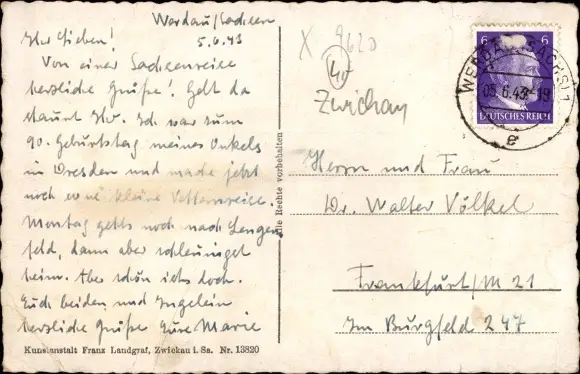 Werdau/Sachsen
5.6.43
Ihr Lieben!
Von einer Sachsenreise
herzliche Grüße! Gelt da
staunt Ihr. Ich war zum
90. Geburtstag meines Onkels
in Dresden und mache jetzt
noch eine kleine Vetternreise.
Montag gehts noch nach Lengen
feld, dann aber schleunigst
heim. Aber schön ists doch.
Euch beiden und Ingelein
herzliche Grüße Eure Marie
Kunstanstalt Franz Landgraf, Zwickau i. Sa. Nr. 13820
Alle Rechte vorbehalten
X 9620
40
Zwickau
6 6
DEUTSCHES REICH
WERDAU (SACHS) 1
05.6.43-19
e
Herrn und Frau
Dr. Walter Völkel
Frankfurt/M 21
Im Burgfeld 247